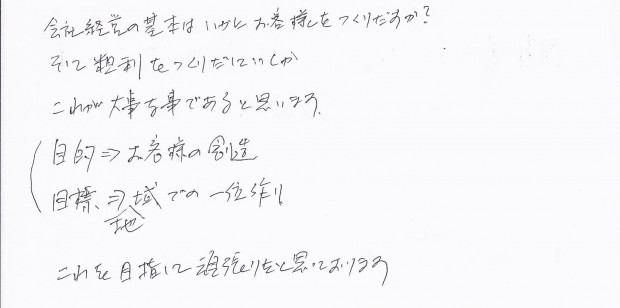 会社経営の基本はいかにお客様をつくりだすか?
そして粗利をつくりだしていくか
これが大事な事であると思います。
目的⇒お客様の創造
目標⇒地域での一位作り
これを目指して頑張りたいと思っております